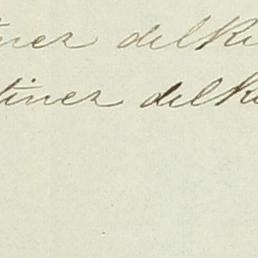 tinez del Ri
tinez del Ri